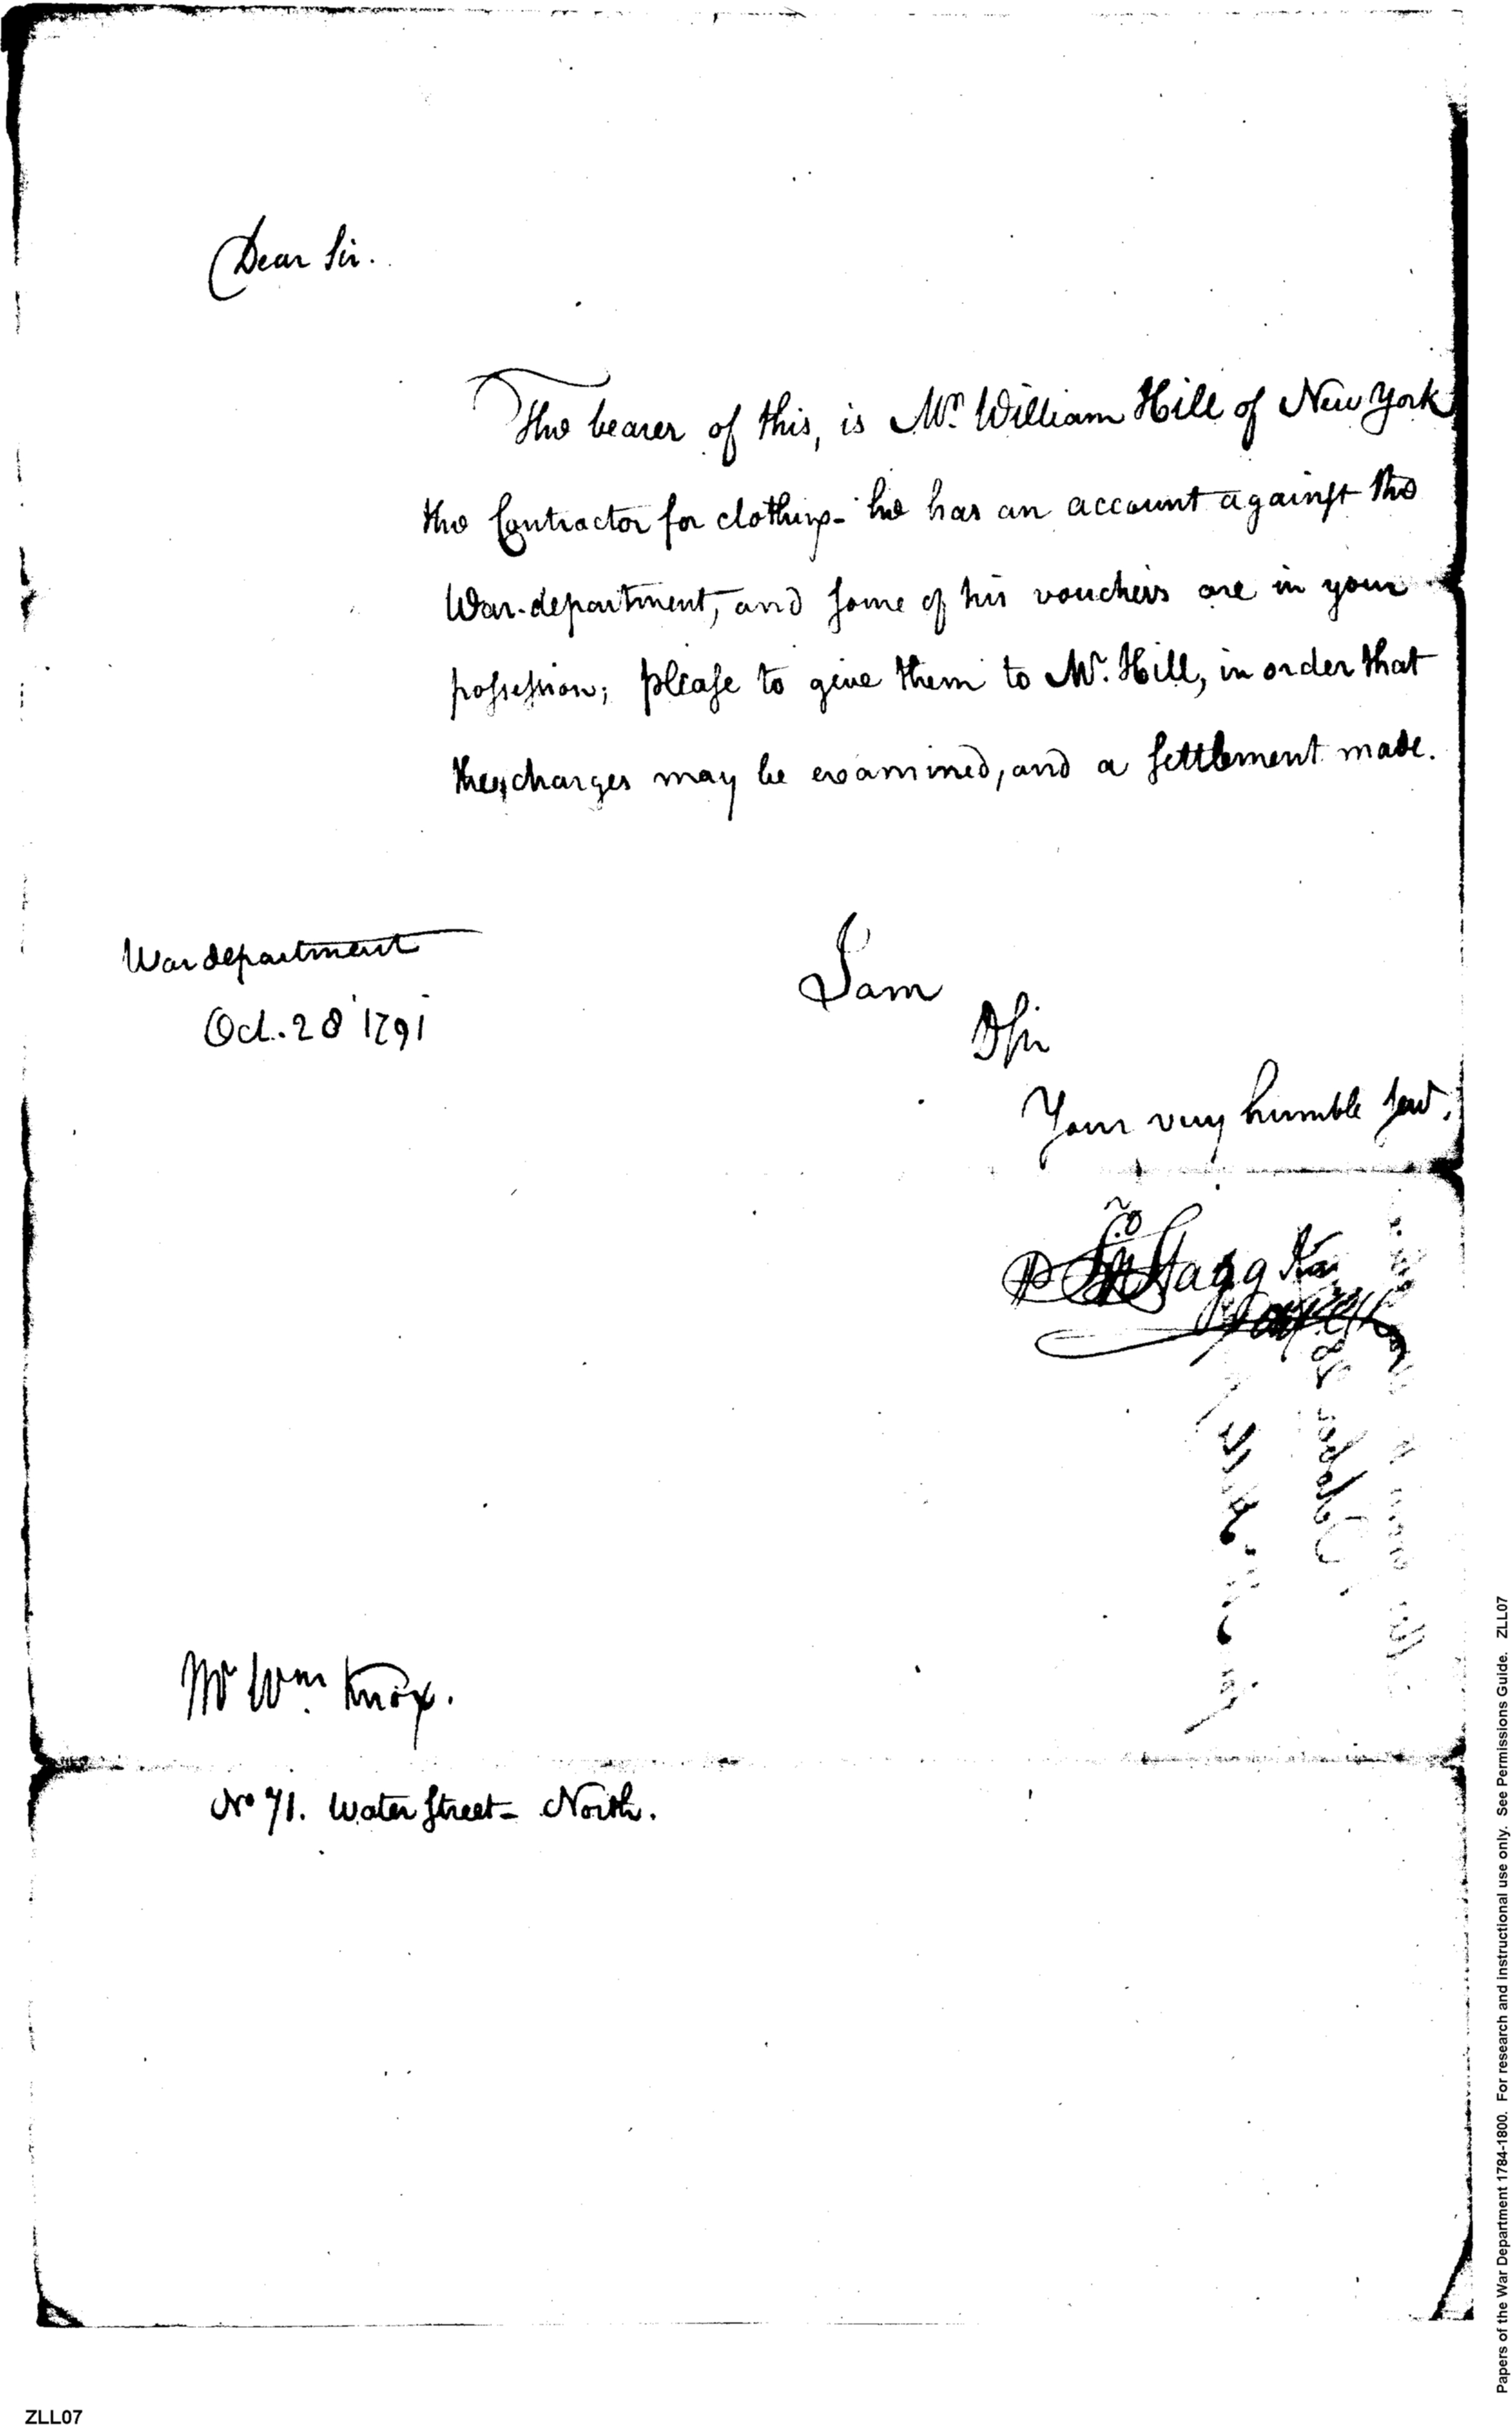 Dear Sir.
The bearer of this, is Mr. William Hill of New York
the Contractor for clothing - he has an account against the
War-department, and some of his vouchers are in your
possession; please to give them to Mr. Hill, in order that
the charges may be examined, and a settlement made.
War department
Oct. 28 1791
I am
D Sir
Your very humble serv.
Stagg
Mr Wm Knox.
No 71. Water Street - North.
Papers of the War Department 1784-1800. For research and instructional use only. See Permissions Guide. ZLL07
ZLL07